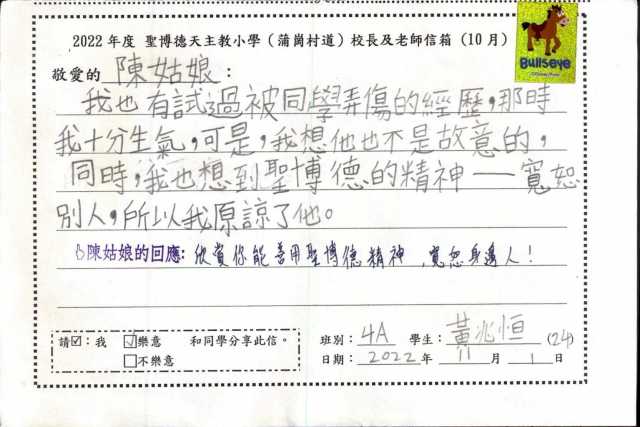 2022 年度 聖博德天主教小學（蒲崗村道）校長及老師信箱（10 月）
Bullseye
敬愛的 陳姑娘：
我也有試過被同學弄傷的經歷，那時
我十分生氣，可是，我想他也不是故意的，
同時，我也想到聖博德的精神——寬恕
別人，所以我原諒了他。
陳姑娘的回應: 欣賞你能善用聖博德精神，寬恕身邊人！
請☑：我 ☑樂意 和同學分享此信。
☐不樂意
班別：4A 學生：黃兆恒 (24)
日期：2022 年 11 月 1 日